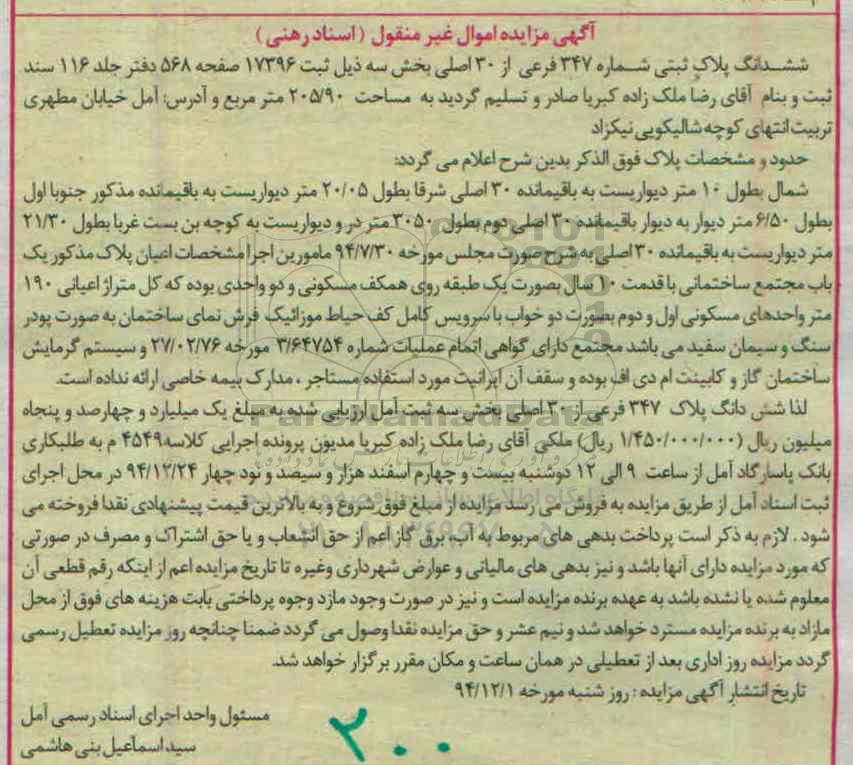 آگهی مزایده اموال غیر منقول ( اسناد رهنی )
ششدانگ پلاک ثبتی شماره ۳۴۷ فرعی از ۳۰ اصلی بخش سه ذیل ثبت ۱۷۳۹۶ صفحه ۵۶۸ دفتر جلد ۱۱۶ سند
ثبت و بنام آقای رضا ملک زاده کبریا صادر و تسلیم گردید به مساحت ۲۰۵/۹۰ متر مربع و آدرس: آمل خیابان مطهری
تربیت انتهای کوچه شالیکویی نیکزاد
حدود و مشخصات پلاک فوق الذکر بدین شرح اعلام می گردد:
شمال بطول ۱۰ متر دیواریست به باقیمانده ۳۰ اصلی شرقا بطول ۲۰/۰۵ متر دیواریست به باقیمانده مذکور جنوبا اول
بطول ۶/۵۰ متر دیوار به دیوار باقیمانده ۳۰ اصلی دوم بطول ۳۰۵۰ متر در و دیواریست به کوچه بن بست غربا بطول ۲۱/۳۰
متر دیواریست به باقیمانده ۳۰ اصلی به شرح صورت مجلس مورخه ۹۴/۷/۳۰ مامورین اجرا مشخصات اعیان پلاک مذکور یک
باب مجتمع ساختمانی با قدمت ۱۰ سال بصورت یک طبقه روی همکف مسکونی و دو واحدی بوده که کل متراژ اعیانی ۱۹۰
متر واحدهای مسکونی اول و دوم بصورت دو خواب با سرویس کامل کف حیاط موزائیک فرش نمای ساختمان به صورت پودر
سنگ و سیمان سفید می باشد مجتمع دارای گواهی اتمام عملیات شماره ۳/۶۴۷۵۴ مورخه ۲۷/۰۲/۷۶ و سیستم گرمایش
ساختمان گاز و کابینت ام دی اف بوده و سقف آن ایرانیت مورد استفاده مستاجر ، مدارک بیمه خاصی ارائه نداده است.
لذا شش دانگ پلاک ۳۴۷ فرعی از ۳۰ اصلی بخش سه ثبت آمل ارزیابی شده به مبلغ یک میلیارد و چهارصد و پنجاه
میلیون ریال (۱/۴۵۰/۰۰۰/۰۰۰ ریال) ملکی آقای رضا ملک زاده کبریا مدیون پرونده اجرایی کلاسه ۴۵۴۹ م به طلبکاری
بانک پاسارگاد آمل از ساعت ۹ الی ۱۲ دوشنبه بیست و چهارم اسفند هزار و سیصد و نود چهار ۹۴/۱۲/۲۴ در محل اجرای
ثبت اسناد آمل از طریق مزایده به فروش می رسد مزایده از مبلغ فوق شروع و به بالاترین قیمت پیشنهادی نقدا فروخته می
شود . لازم به ذکر است پرداخت بدهی های مربوط به آب، برق گاز اعم از حق انشعاب و یا حق اشتراک و مصرف در صورتی
که مورد مزایده دارای آنها باشد و نیز بدهی های مالیاتی و عوارض شهرداری وغیره تا تاریخ مزایده اعم از اینکه رقم قطعی آن
معلوم شده یا نشده باشد به عهده برنده مزایده است و نیز در صورت وجود مازد وجوه پرداختی بابت هزینه های فوق از محل
مازاد به برنده مزایده مسترد خواهد شد و نیم عشر و حق مزایده نقدا وصول می گردد ضمنا چنانچه روز مزایده تعطیل رسمی
گردد مزایده روز اداری بعد از تعطیلی در همان ساعت و مکان مقرر برگزار خواهد شد.
تاریخ انتشار آگهی مزایده : روز شنبه مورخه ۹۴/۱۲/۱
مسئول واحد اجرای اسناد رسمی آمل
سید اسماعیل بنی هاشمی
۲۰۰